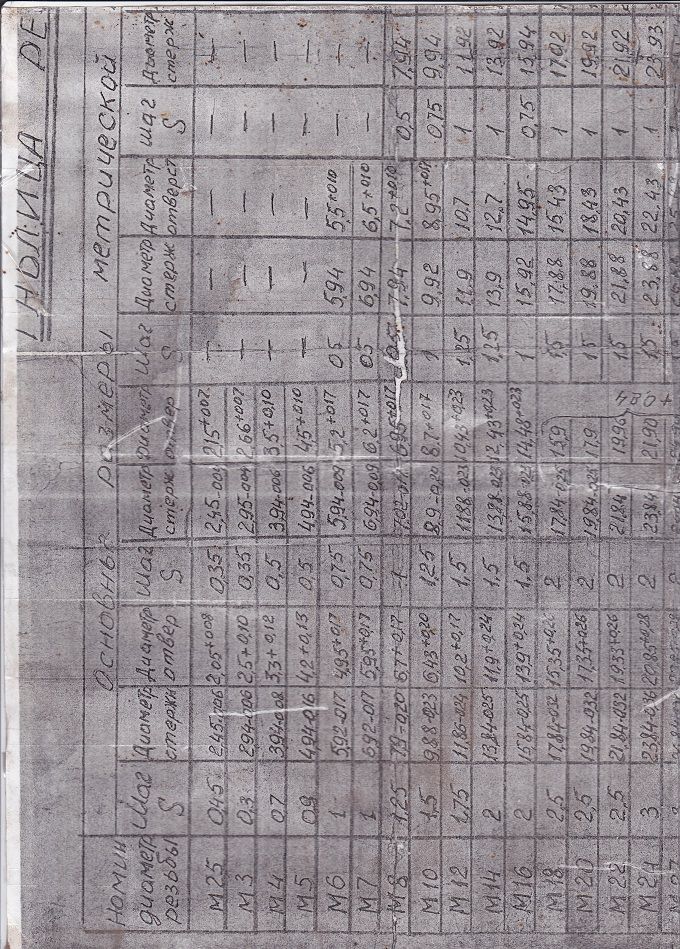 ТАБЛИЦА РЕ
Основные размеры метрической
Номин диаметр резьбы Шаг S Диаметр стержн Диаметр отвер Шаг S Диаметр стерж Диаметр отвер Шаг S Диаметр стерж Диаметр отверст Шаг S Диаметр стерж
М2,5 0,45 2,45-0,06 2,05+0,08 0,35 2,45-0,04 2,15+0,07 — — — — —
М3 0,3 2,94-0,06 2,5+0,10 0,35 2,95-0,04 2,66+0,07 — — — — —
М4 0,7 3,94-0,08 3,3+0,12 0,5 3,94-0,06 3,5+0,10 — — — — —
М5 0,8 4,94-0,16 4,2+0,13 0,5 4,94-0,06 4,5+0,10 — — — — —
М6 1 5,92-0,17 4,95+0,17 0,75 5,94-0,09 5,2+0,17 0,5 5,94 5,5+0,10 — —
М7 1 6,92-0,17 5,95+0,17 0,75 6,94-0,09 6,2+0,17 0,5 6,94 6,5+0,10 — —
М8 1,25 7,9-0,20 6,7+0,17 1 7,92-0,17 6,95+0,17 7,94 7,2+0,10 0,5 7,94
М10 1,5 9,88-0,23 8,43+0,20 1,25 8,9-0,20 8,7+0,17 1 9,92 8,95+0,17 0,75 9,94
М12 1,75 11,86-0,24 10,2+0,17 1,5 11,88-0,23 10,43+0,23 1,25 11,9 10,7 1 11,92
М14 2 13,84-0,25 11,9+0,24 1,5 13,88-0,23 12,43+0,23 1,25 13,9 12,7 1 13,92
М16 2 15,84-0,25 13,9+0,24 1,5 15,88-0,23 14,48+0,23 1 15,92 14,95 0,75 15,94
М18 2,5 17,84-0,32 15,35+0,26 2 17,84-0,25 15,9 1,5 17,88 15,43 1 17,02
М20 2,5 19,84-0,32 17,35+0,26 2 19,84-0,25 17,9 1,5 19,88 18,43 1 19,92
М22 2,5 21,84-0,32 19,33+0,26 2 21,84 19,96 1,5 21,88 20,43 1 21,92
М24 3 23,84-0,36 20,85+0,28 2 23,84 21,90 1,5 23,88 22,43 1 23,93
+0,24